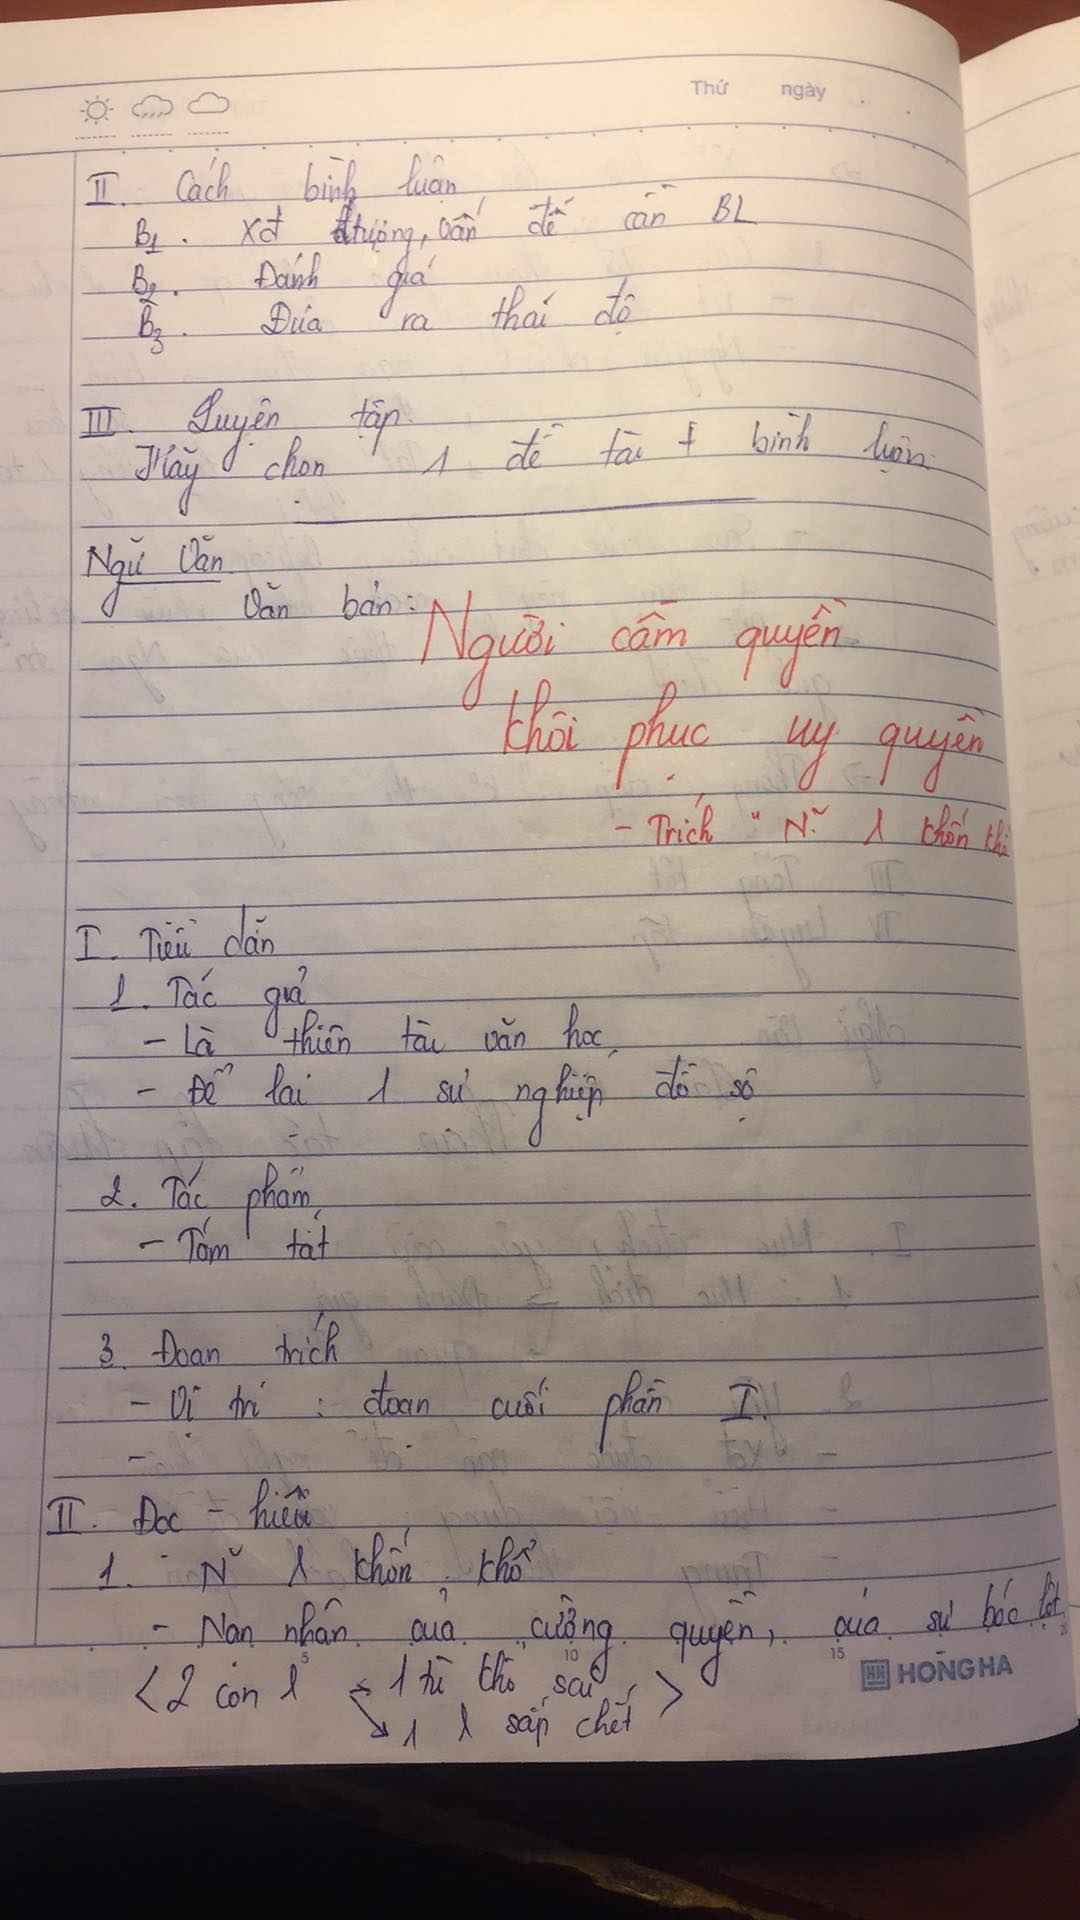 Thứ ngày
II. Cách bình luận
B1. Xđ đtượng, vấn đề cần BL
B2. Đánh giá
B3. Đưa ra thái độ
III. Luyện tập
Hãy chọn 1 đề tài + bình luận
Ngữ Văn
Văn bản: Người cầm quyền
khôi phục uy quyền
- Trích "N~ ł khốn khổ
I. Tiểu dẫn
1. Tác giả
- Là thiên tài văn học
- Để lại 1 sự nghiệp đồ sộ
2. Tác phẩm
- Tóm tắt
3. Đoạn trích
- Vị trí : đoạn cuối phần I.
-
II. Đọc - hiểu
1. N~ ł khốn khổ
- Nạn nhân của cường quyền, của sự bóc lột
5 10 15 20
HONG HA
<2 con ł 1 tù khổ sai
1 ł sắp chết >